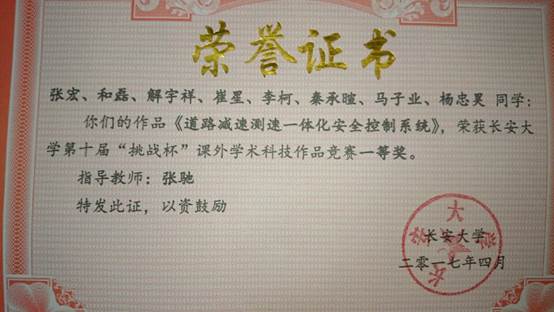 荣誉证书
张宏、和磊、解宇祥、崔星、李柯、秦承暄、马子业、杨忠昊 同学:
你们的作品《道路减速测速一体化安全控制系统》，荣获长安大
学第十届“挑战杯”课外学术科技作品竞赛一等奖。
指导教师：张驰
特发此证，以资鼓励
长安大学
二零一七年四月